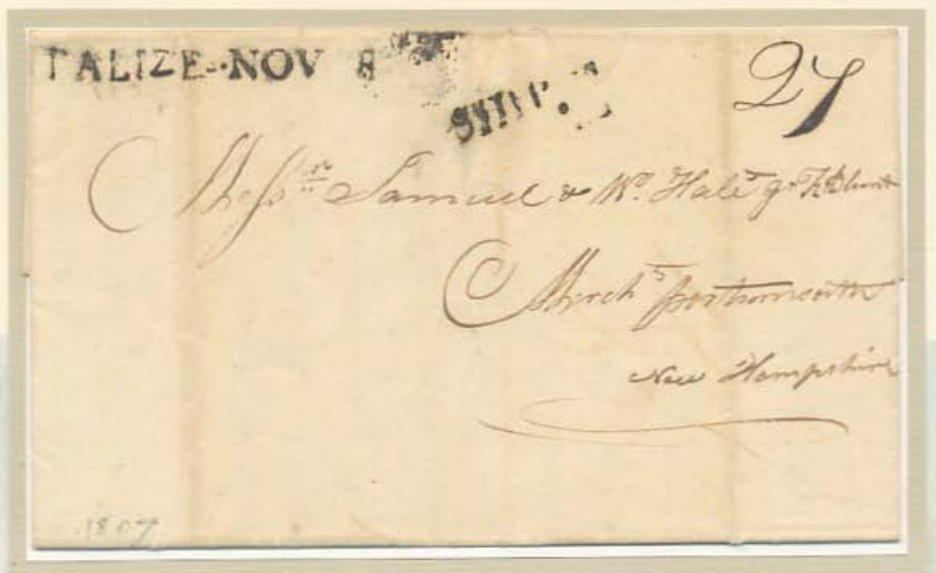 PALIZE··NOV 8
SHIP
27
Mess.rs Samuel & Wm. Hale
Merch.ts Portsmouth
New Hampshire
1807